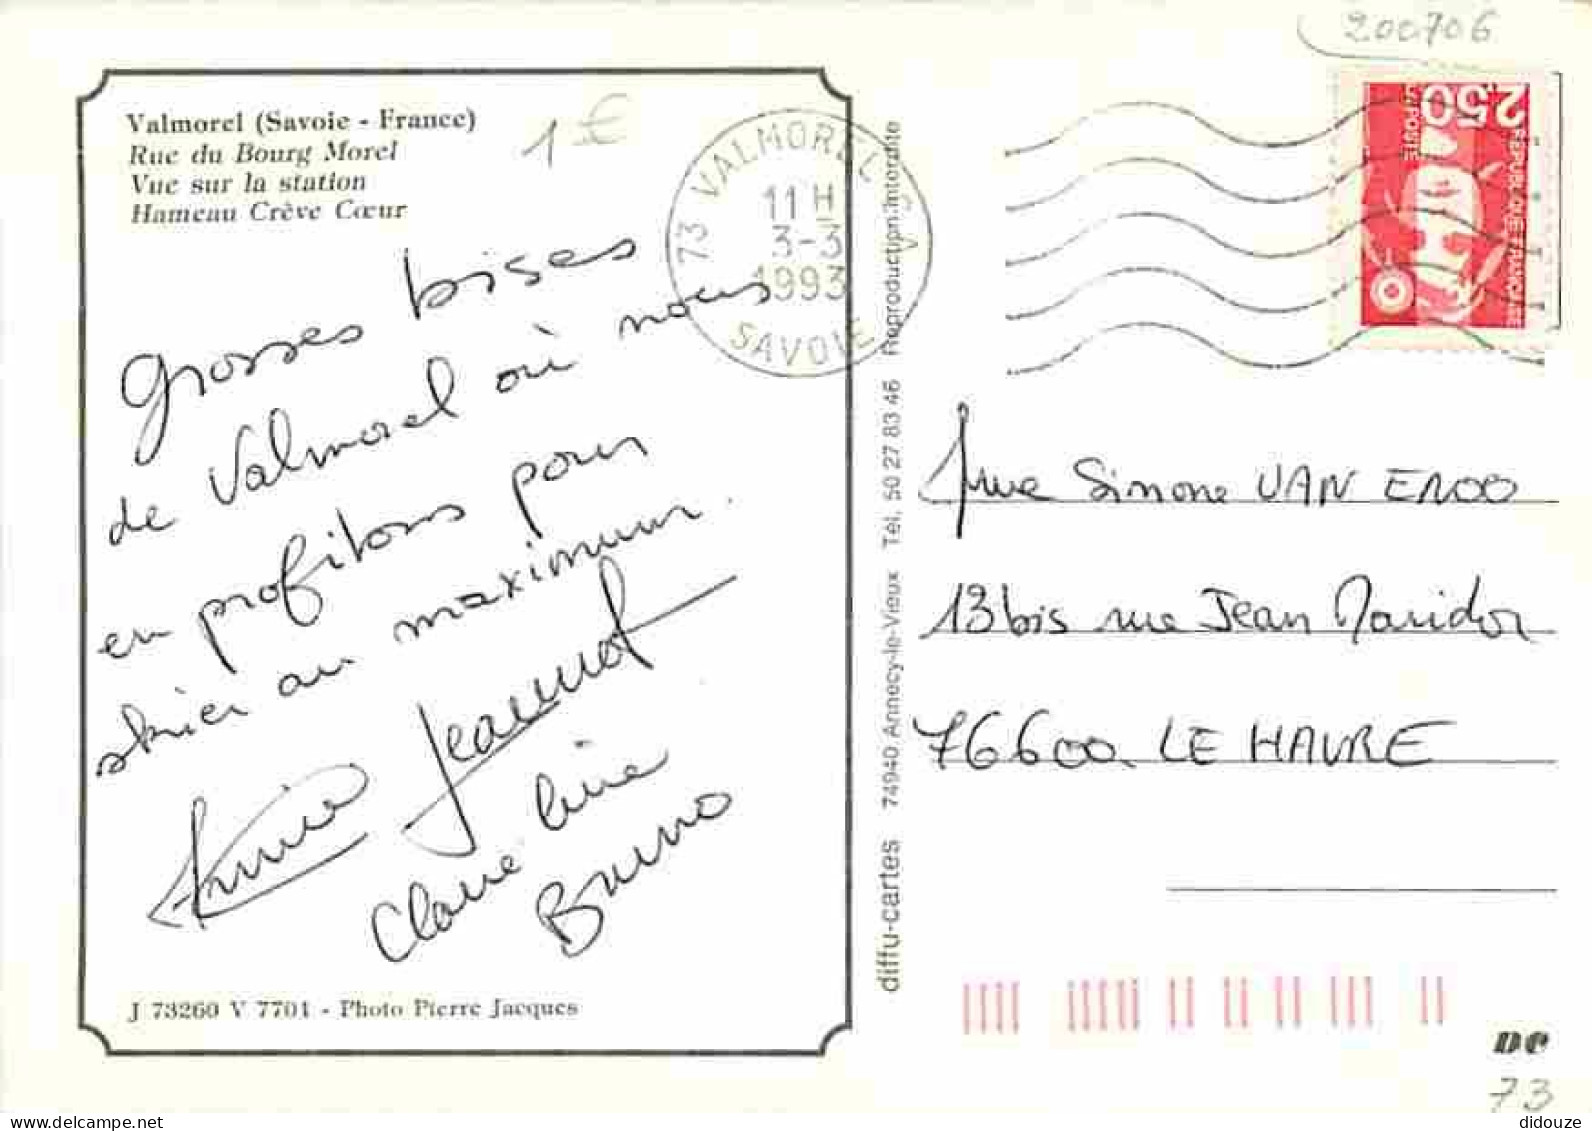 200706
Valmorel (Savoie - France)
Rue du Bourg Morel
Vue sur la station
Hameau Crêve Cœur
1 €
73 VALMOREL
11 H
3-3
1993
SAVOIE
2,50
LA POSTE
REPUBLIQUE FRANÇAISE
grosses bises
de Valmorel où nous
en profitons pour
skier au maximum.
Jeannot
Annie
Claire Line
Bruno
J 73260 V 7701 - Photo Pierre Jacques
diffu-cartes 74940 Annecy-le-Vieux Tél. 50 27 83 46 Reproduction interdite
Simone VAN ENOO
13 bis rue Jean Maridor
76600 LE HAVRE
DC
73
didouze